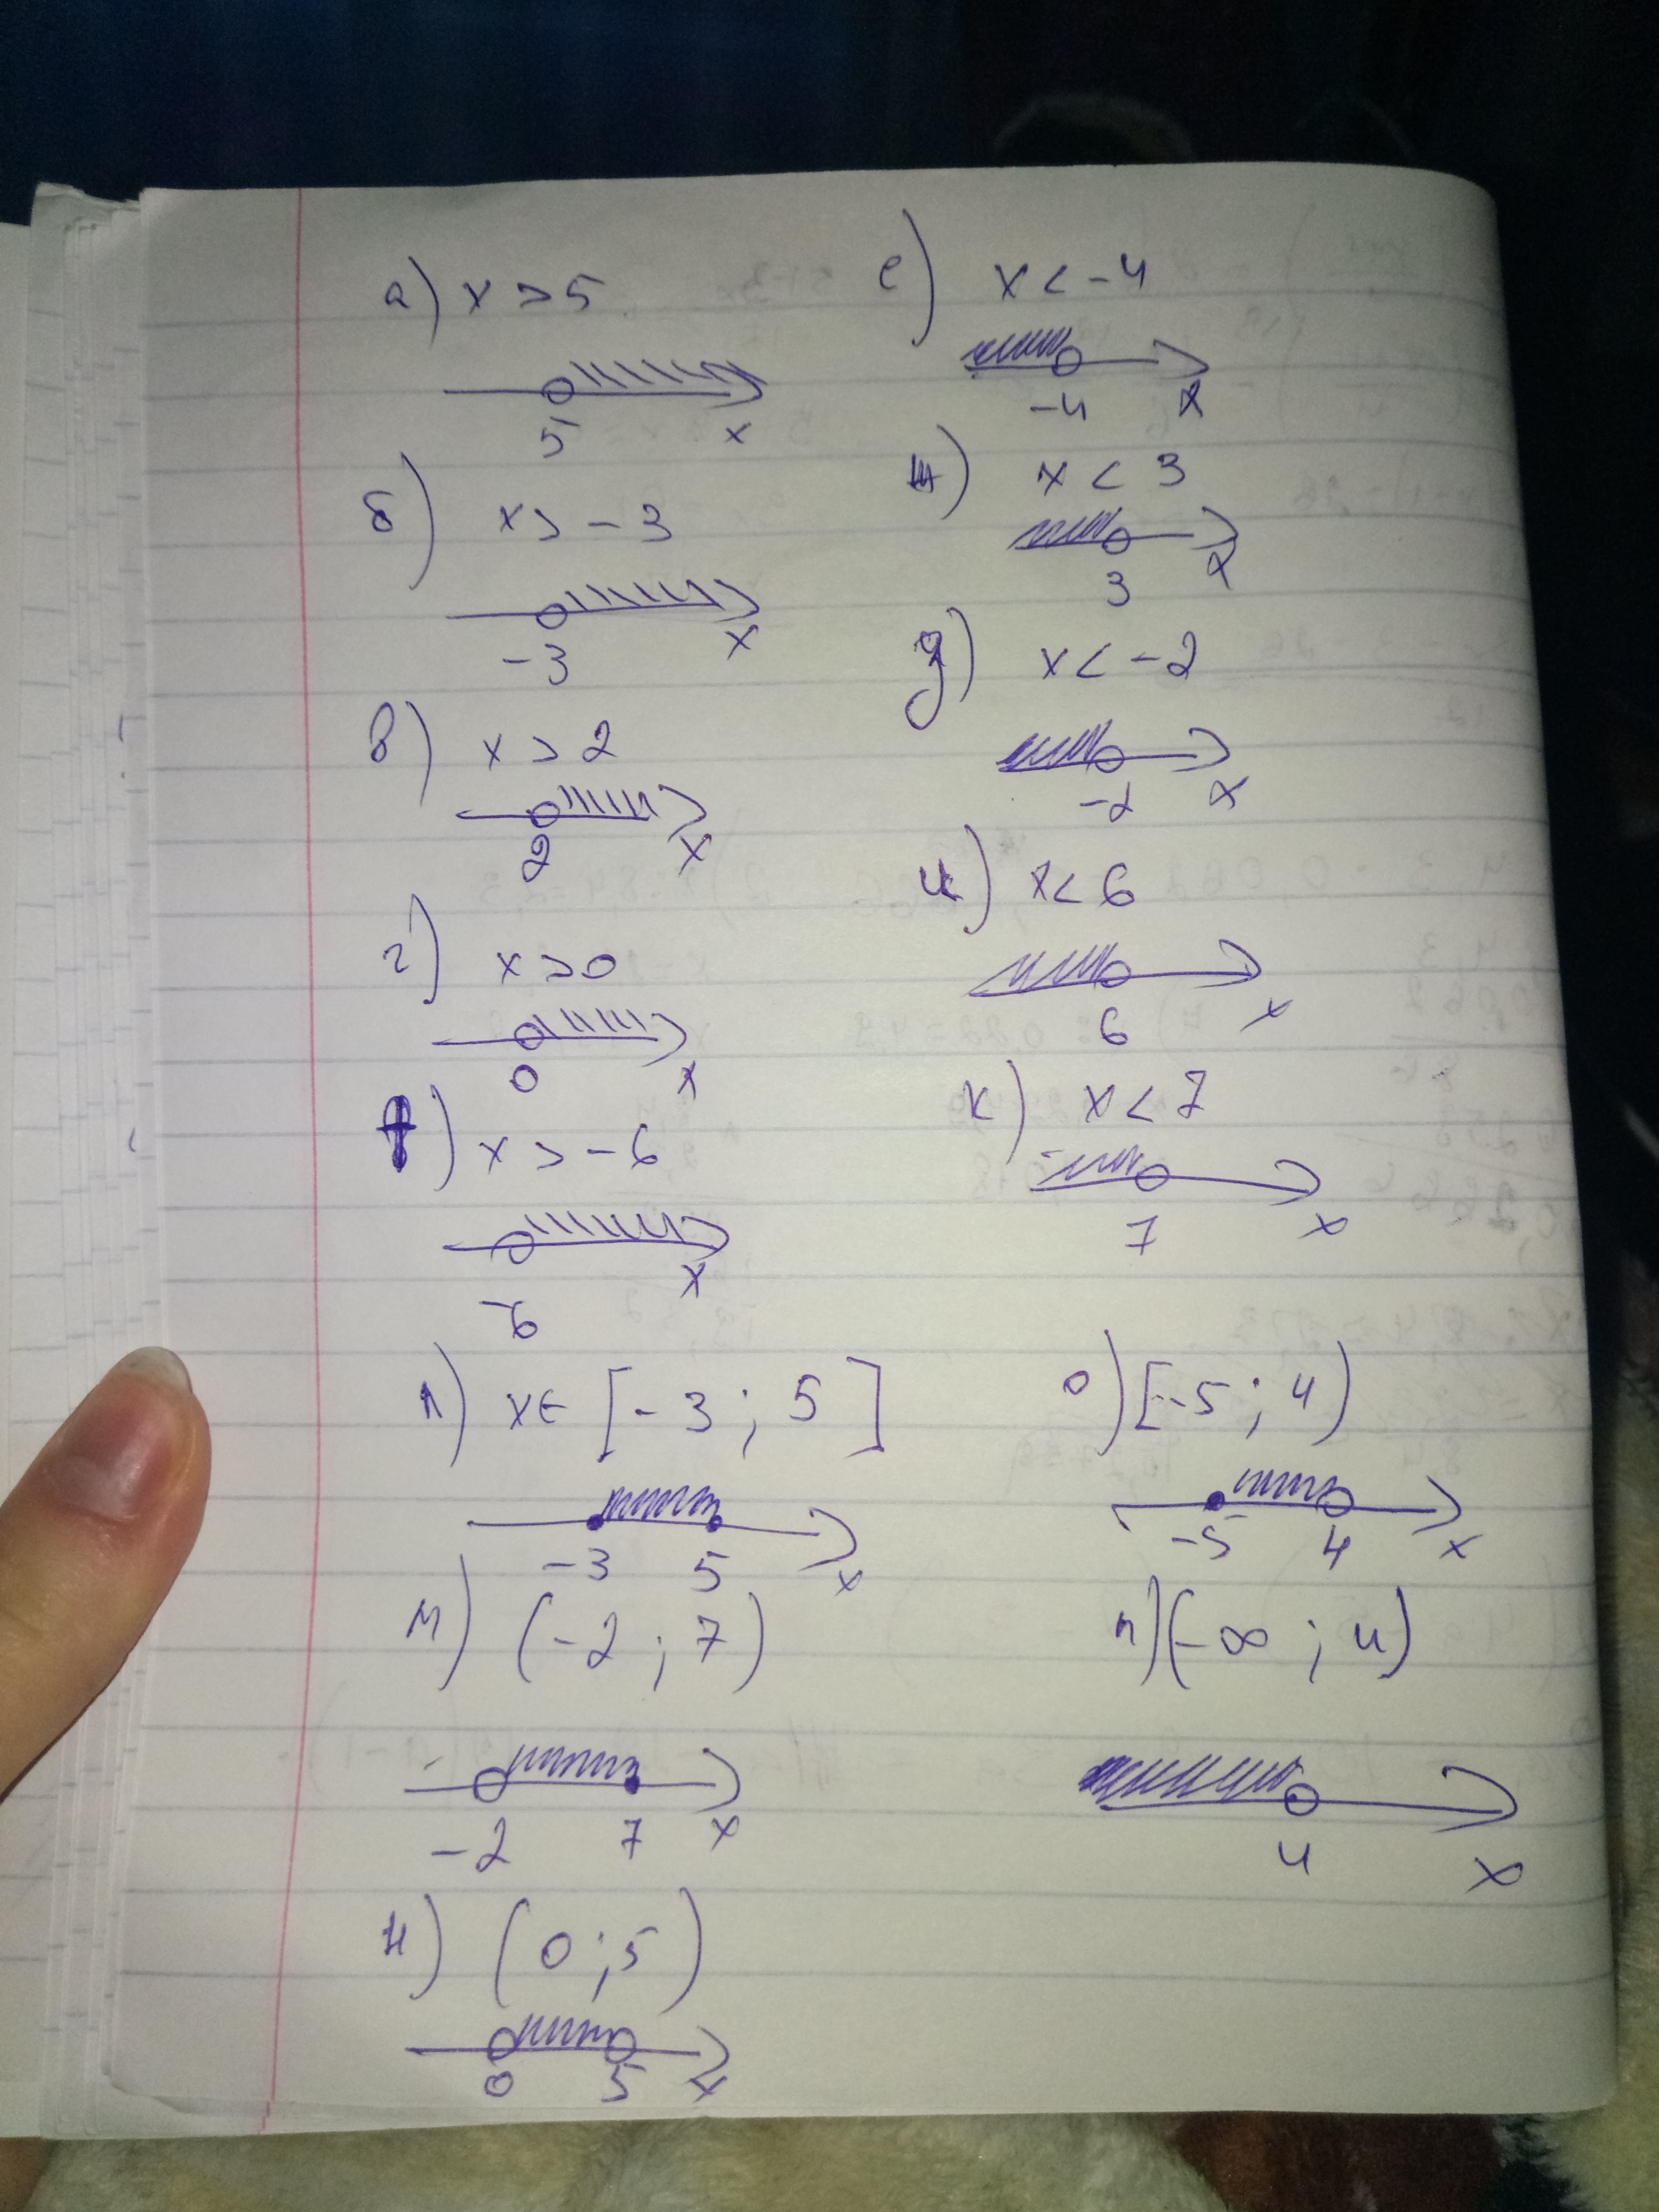 а) x > 5
5 x
б) x > -3
-3 x
в) x > 2
2 x
г) x > 0
0 x
) x > -6
-6 x
е) x < -4
-4 x
ж) x < 3
3 x
) x < -2
-2 x
и) x < 6
6 x
к) x < 7
7 x
л) x ∈ [-3 ; 5]
-3 5 x
м) (-2 ; 7)
-2 7 x
н) (0 ; 5)
0 5 x
о) [-5 ; 4)
-5 4 x
п) (-∞ ; 4)
4 x